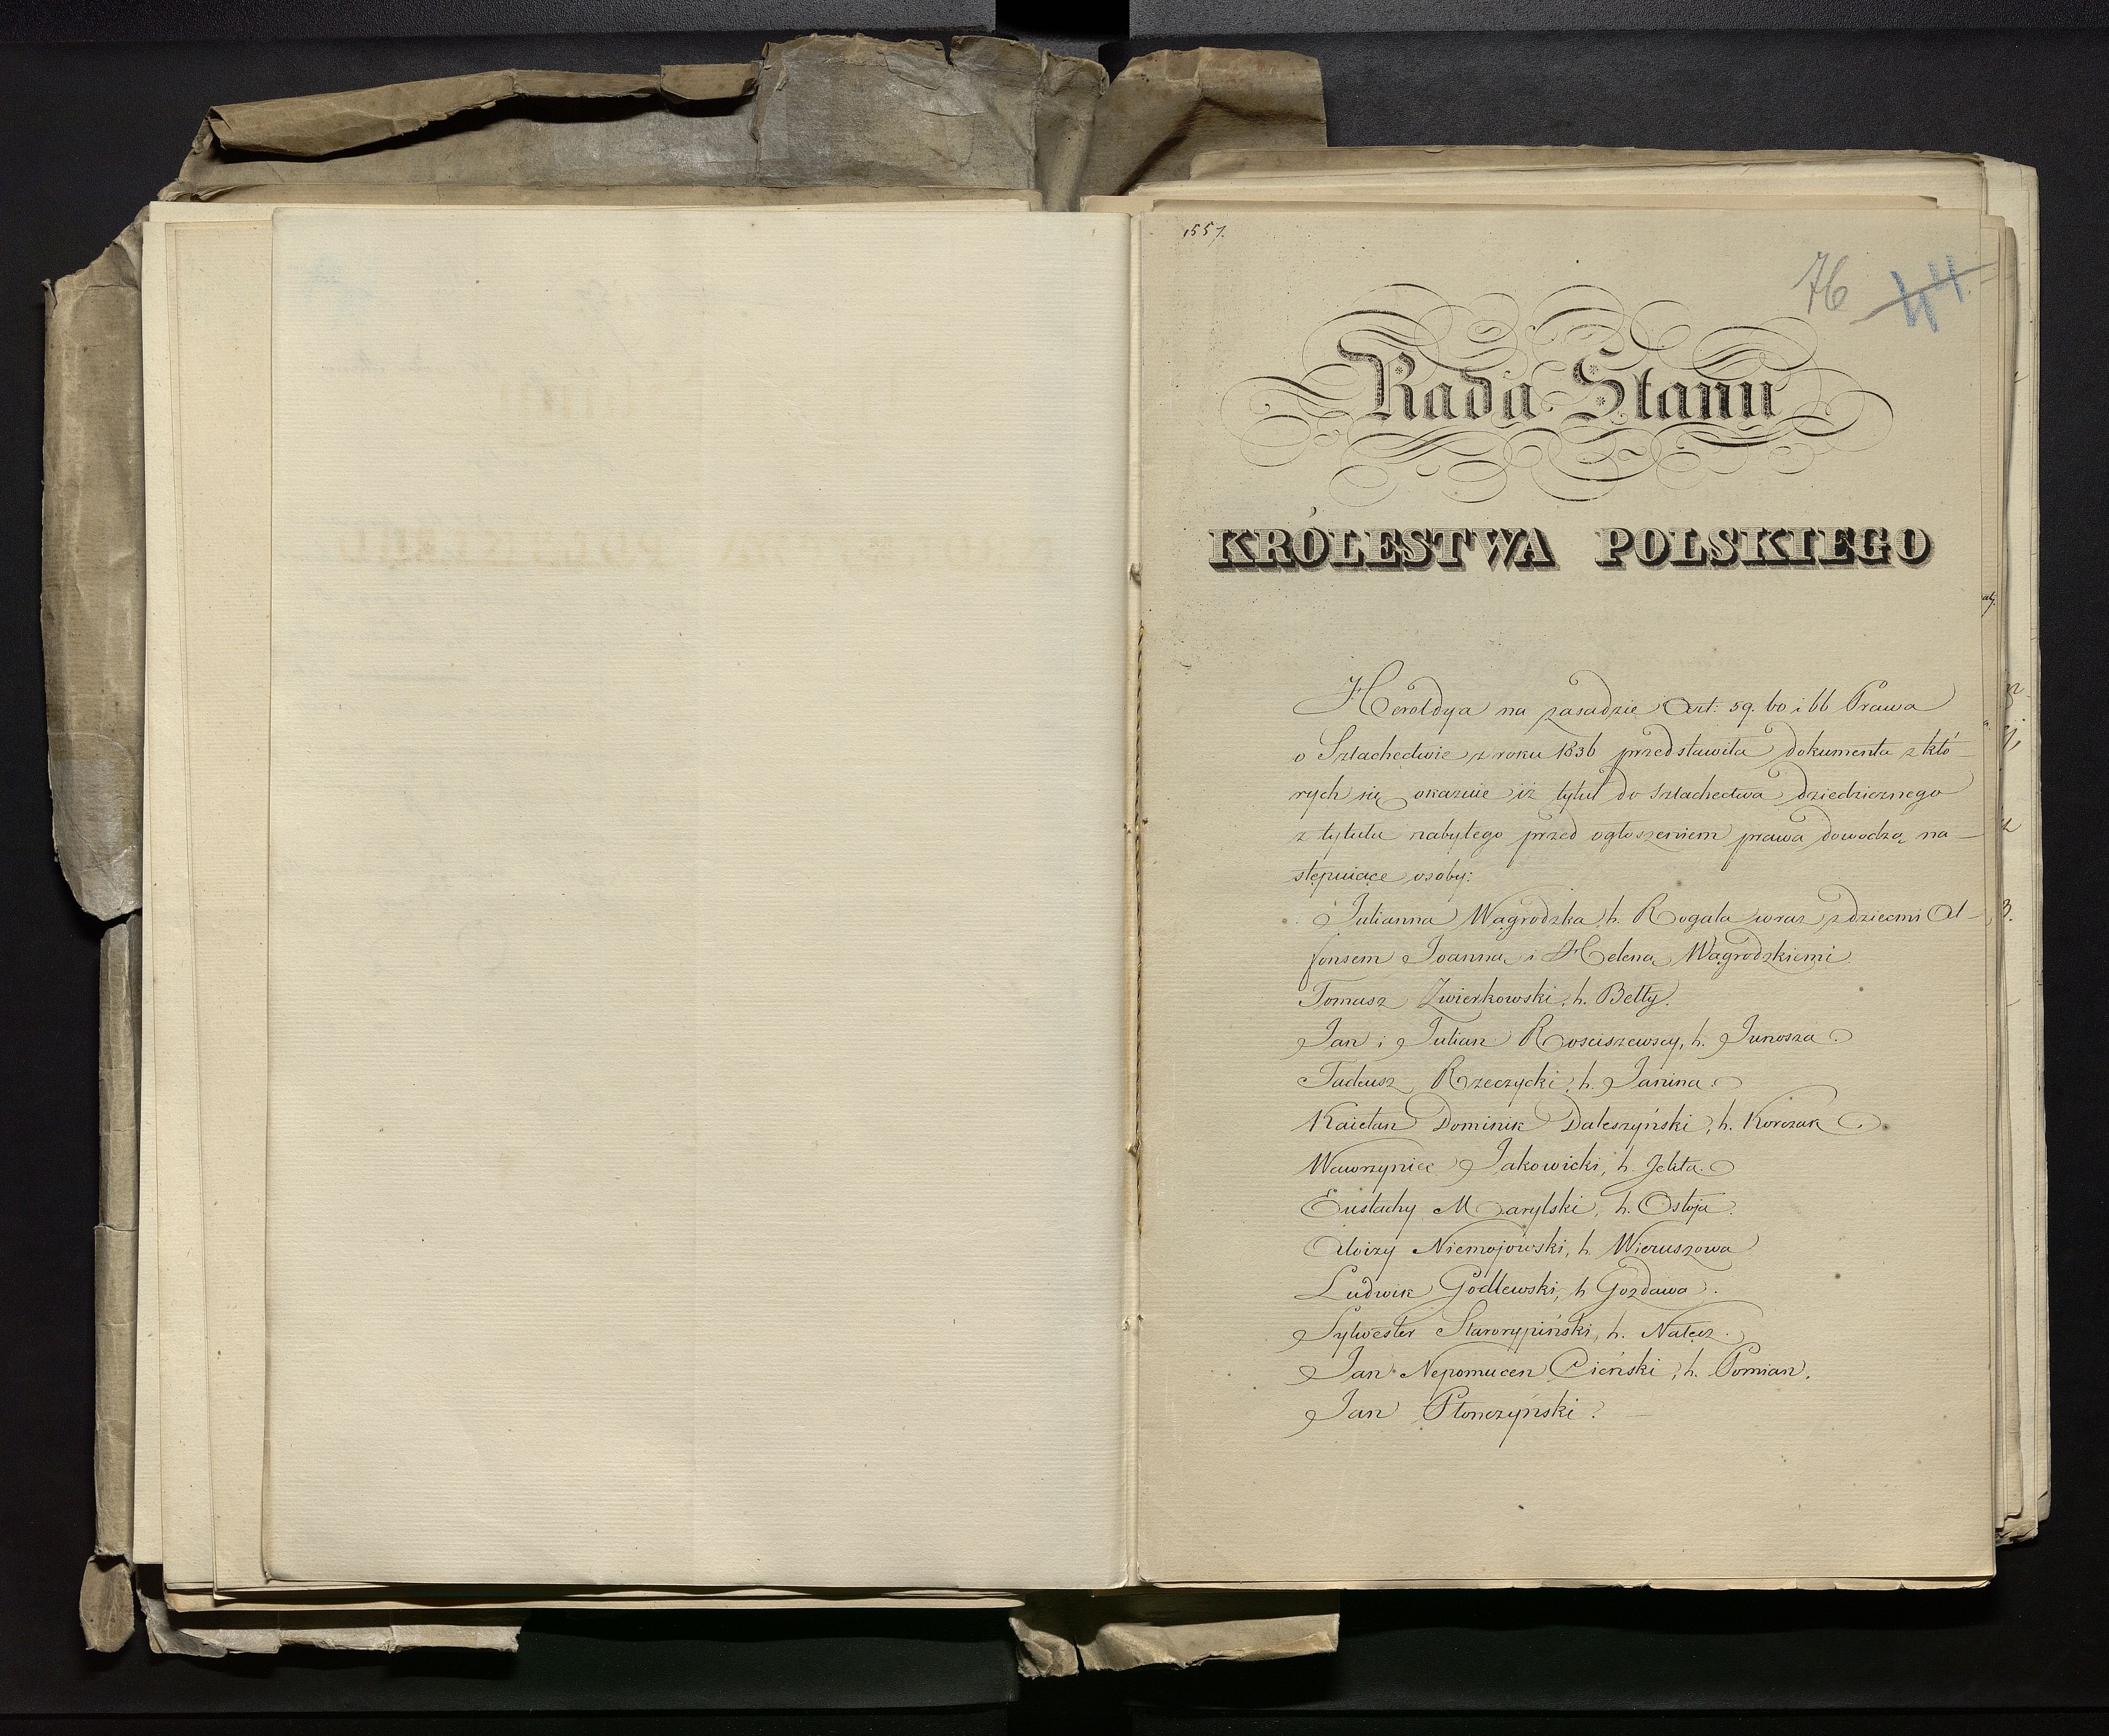 1557.
76 44
Rada Stanu
KRÓLESTWA POLSKIEGO
Heroldya na zasadzie Art: 59. 60 i 66 Prawa
o Szlachectwie z roku 1836 przedstawiła dokumenta z któ-
rych się okazuie iż tytuł do szlachectwa dziedzicznego
z tytułu nabytego przed ogłoszeniem prawa dowodzą na-
stępuiące osoby:
Julianna Wągrodzka, h. Rogala wraz z dziećmi Al-
fonsem Joanną i Heleną Wągrodzkiemi
Tomasz Zwierkowski, h. Bełty.
Jan i Julian Rościszewscy, h. Junosza.
Tadeusz Rzeczycki, h. Janina.
Kaietan Dominik Daleszyński, h. Korczak.
Wawrzyniec Jakowicki, h. Jelita.
Eustachy Marylski, h. Ostoja.
Aloizy Niemojowski, h. Wieruszowa
Ludwik Godlewski, h Gozdawa.
Sylwester Starorypiński, h. Nałęcz.
Jan Nepomucen Cieński, h. Pomian.
Jan Płonczyński.